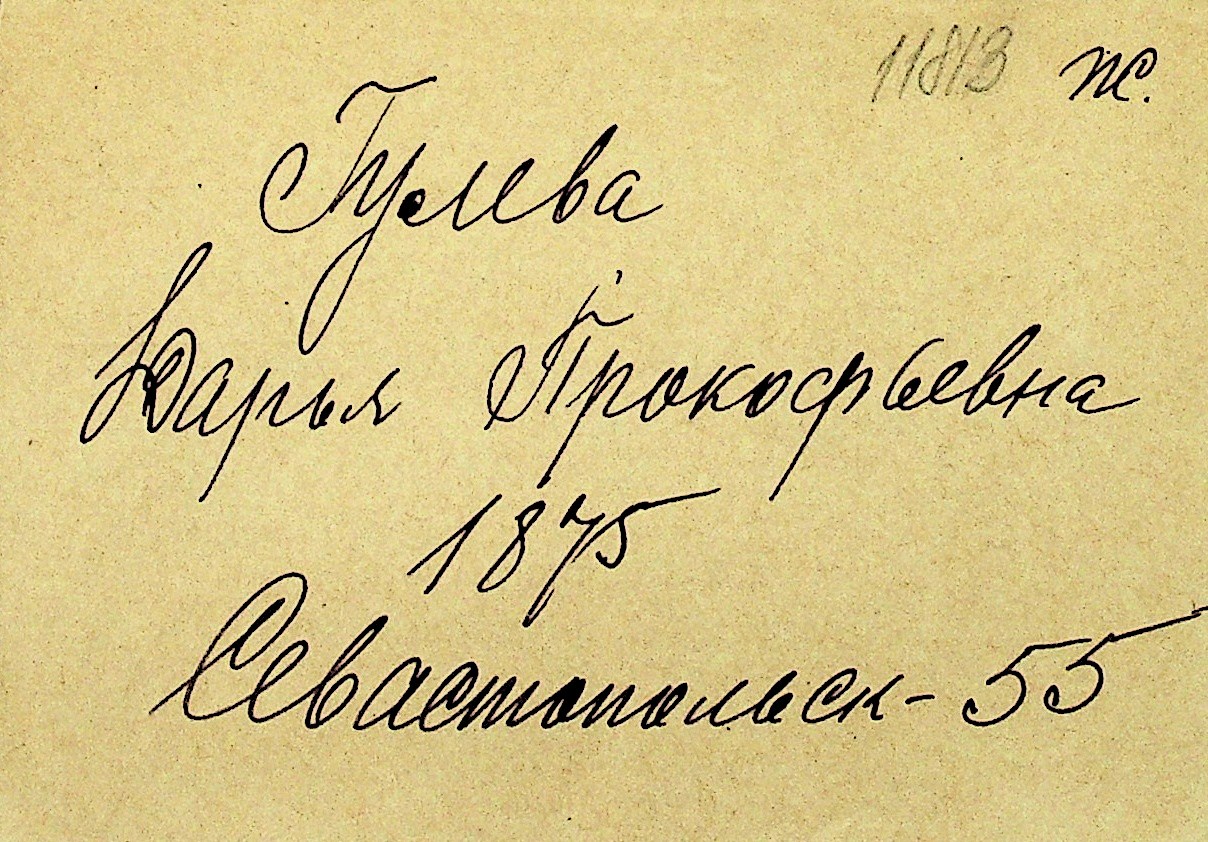 11813 Ж.
Гулева
Дарья Прокофьевна
1875
Севастопольск-55